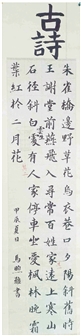 古詩
朱雀橋邊野草花烏衣巷口夕陽斜舊
王謝堂前燕飛入尋常百姓家遠上寒山
石徑斜白雲有人家停車坐愛楓林晚霜
葉紅於二月花
甲辰夏日